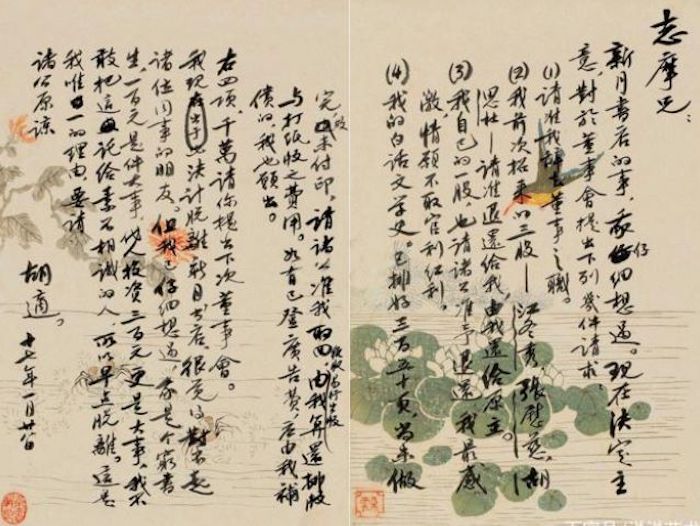 志摩兄：
新月書店的事，我仔細想過。現在決定主
意，對於董事會提出下列幾件請求：
(1) 請准我辭去董事之職。
(2) 我前次招來的三股——江冬秀，張慰慈，胡
思杜——請准退還給我，由我還給原主。
(3) 我自己的一股，也請諸公准予退還，我最感
激，情願不取官利紅利。
(4) 我的白話文學史，已排好三百五十頁，尚未做
完，故未付印，請諸公准我取回，由我算還排版
與打紙版之費用。如有已登廣告費，應由我補
償的，我也願出。
右四項，千萬請你提出下次董事會。
我現在決計脫離新月書店，很覺得對不起
諸位同事的朋友。但我已仔細想過，我是一個窮書
生，一百元是件大事，代人投資三百元更是大事，我不
敢把這點託給素不相識的人，所以早點脫離。這是
我唯一的理由，要請
諸公原諒
胡適。
十七年一月廿八日